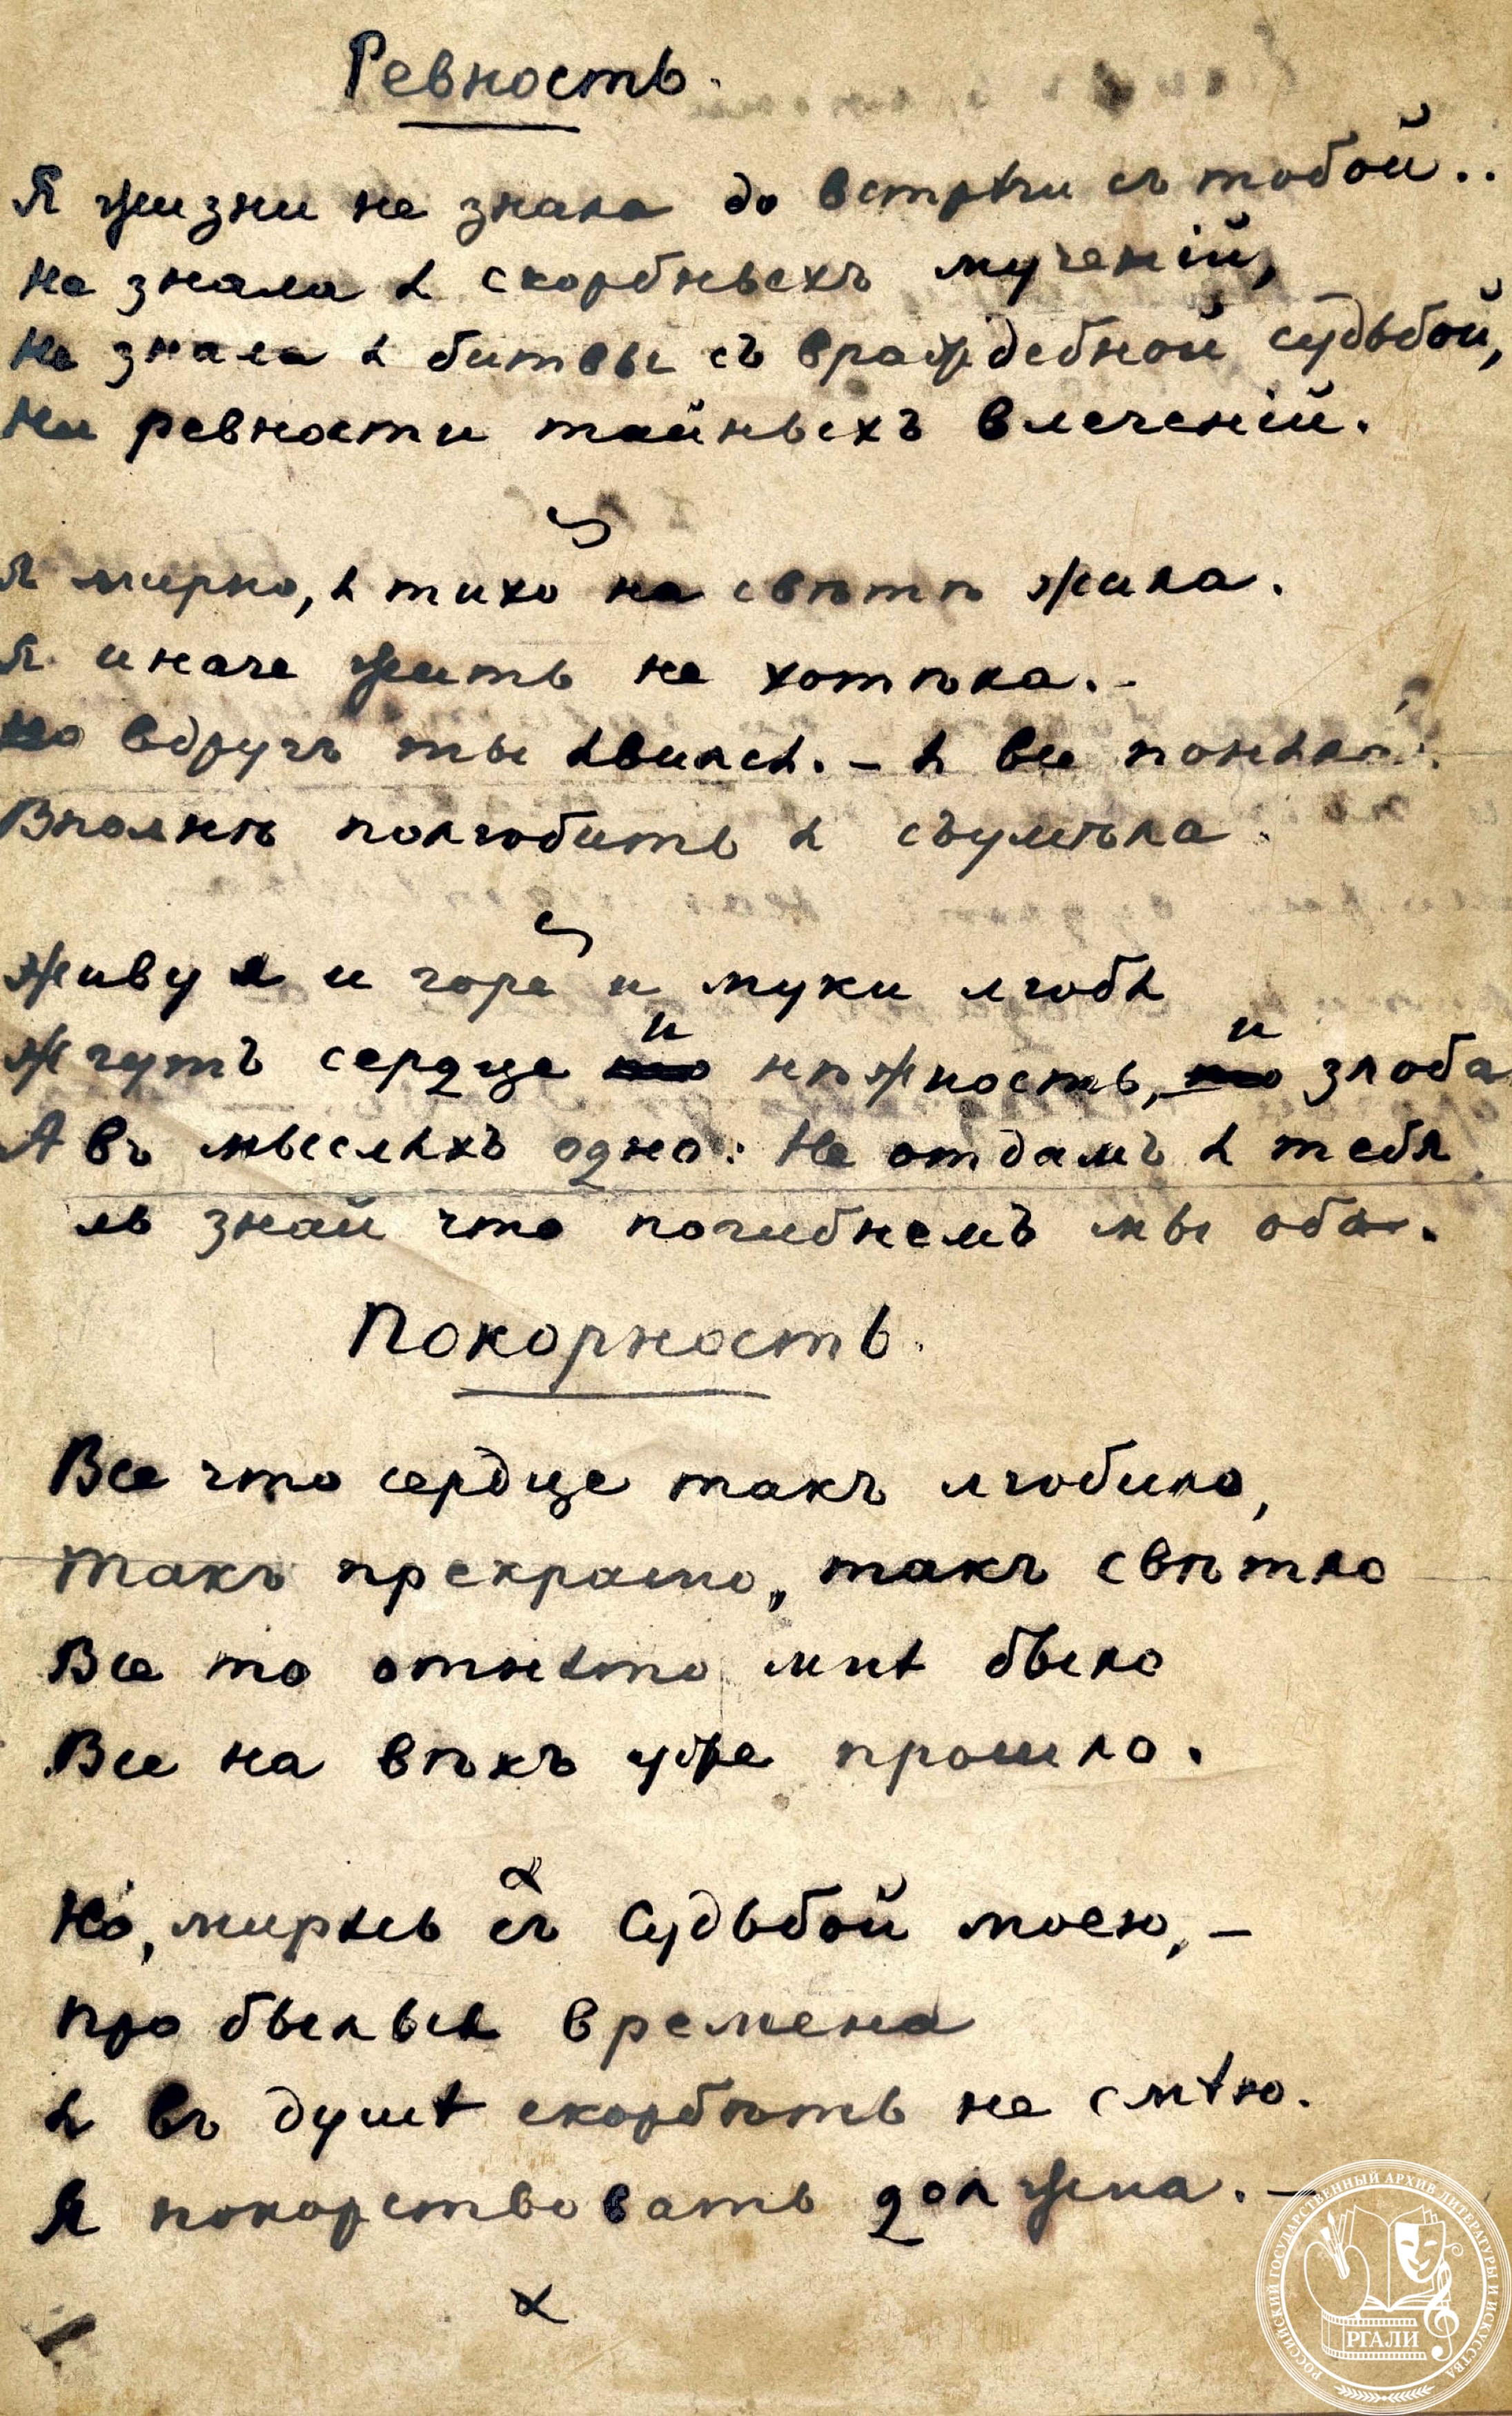 Ревность.
Я жизни не знала до встрѣчи съ тобой..
Не знала я скорбныхъ мученій,
Не знала я битвы съ враждебной судьбой,
Ни ревности тайныхъ влеченій.
Я мирно, я тихо на свѣтѣ жила.
Я иначе жить не хотѣла.-
Но вдругъ ты явился. - Я все поняла..
Вполнѣ полюбить я съумѣла.
Живу я и горе и муки любя
Жгутъ сердце то и нѣжность, то и злоба
А въ мысляхъ одно: Не отдамъ я тебя
ль знай что погибнемъ мы оба.
Покорность.
Все что сердце такъ любило,
Такъ прекрасно, такъ свѣтло
Все то отнято мнѣ было
Все на вѣкъ уже прошло.
Но, мирясь съ Судьбой моею, -
Про былыя времена
Я въ душѣ скорбѣть не смѣю.
Я покорствовать должна. -
РОССИЙСКИЙ ГОСУДАРСТВЕННЫЙ АРХИВ ЛИТЕРАТУРЫ И ИСКУССТВА
РГАЛИ